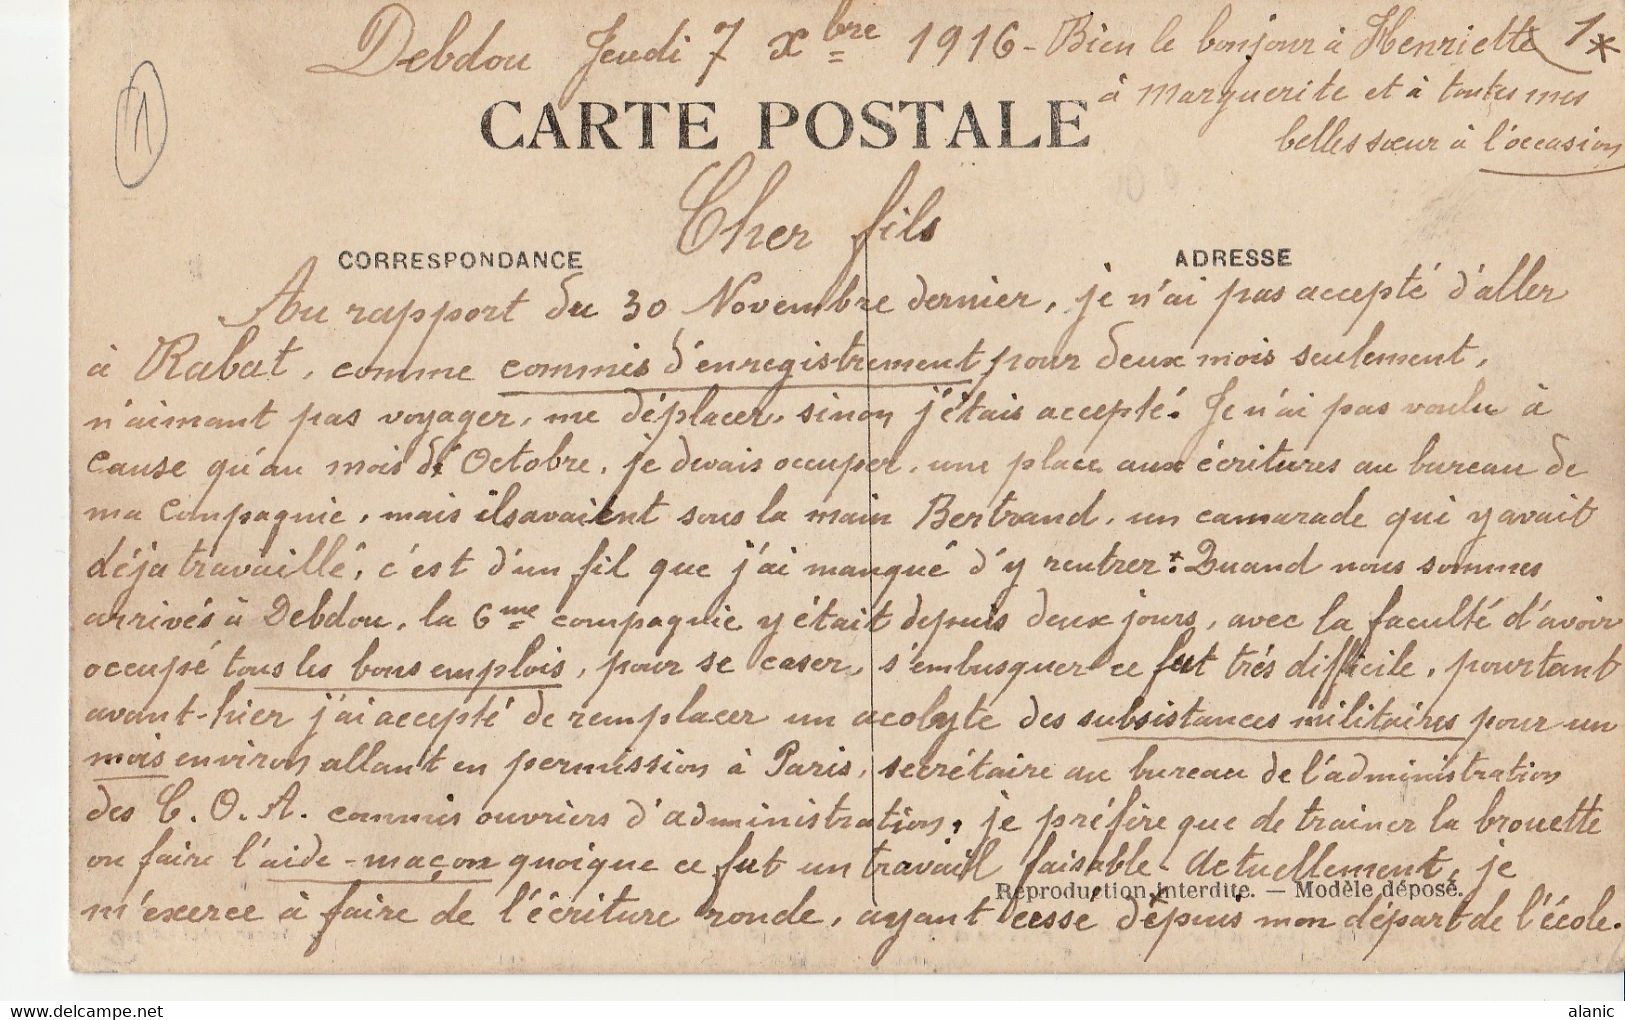 Debdou Jeudi 7 Xbre 1916 - Bien le bonjour à Henriette 1*
à Marguerite et à toutes mes
belles sœur à l'occasion
1
CARTE POSTALE
Cher fils
CORRESPONDANCE ADRESSE
Au rapport du 30 Novembre dernier, je n'ai pas accepté d'aller
à Rabat, comme commis d'enregistrement, pour deux mois seulement,
n'aimant pas voyager, me déplacer, sinon j'étais accepté. Je n'ai pas voulu à
cause qu'au mois d'Octobre, je devais occuper, une place aux écritures au bureau de
ma Compagnie, mais ils avaient sous la main Bertrand, un camarade qui y avait
déja travaillé, c'est d'un fil que j'ai manqué d'y rentrer: Quand nous sommes
arrivés à Debdou, la 6me compagnie y était depuis deux jours, avec la faculté d'avoir
occupé tous les bons emplois, pour se caser, s'embusquer ce fut très difficile, pourtant
avant-hier j'ai accepté de remplacer un acolyte des subsistances militaires pour un
mois environ allant en permission à Paris, secrétaire au bureau de l'administration
des C. O. A. commis ouvriers d'administration, je préfère que de trainer la brouette
ou faire l'aide-maçon quoique ce fut un travail faisable - Actuellement, je
Reproduction interdite. — Modèle déposé.
m'exerce à faire de l'écriture ronde, ayant cessé dépuis mon départ de l'école.
alanic
www.delcampe.net